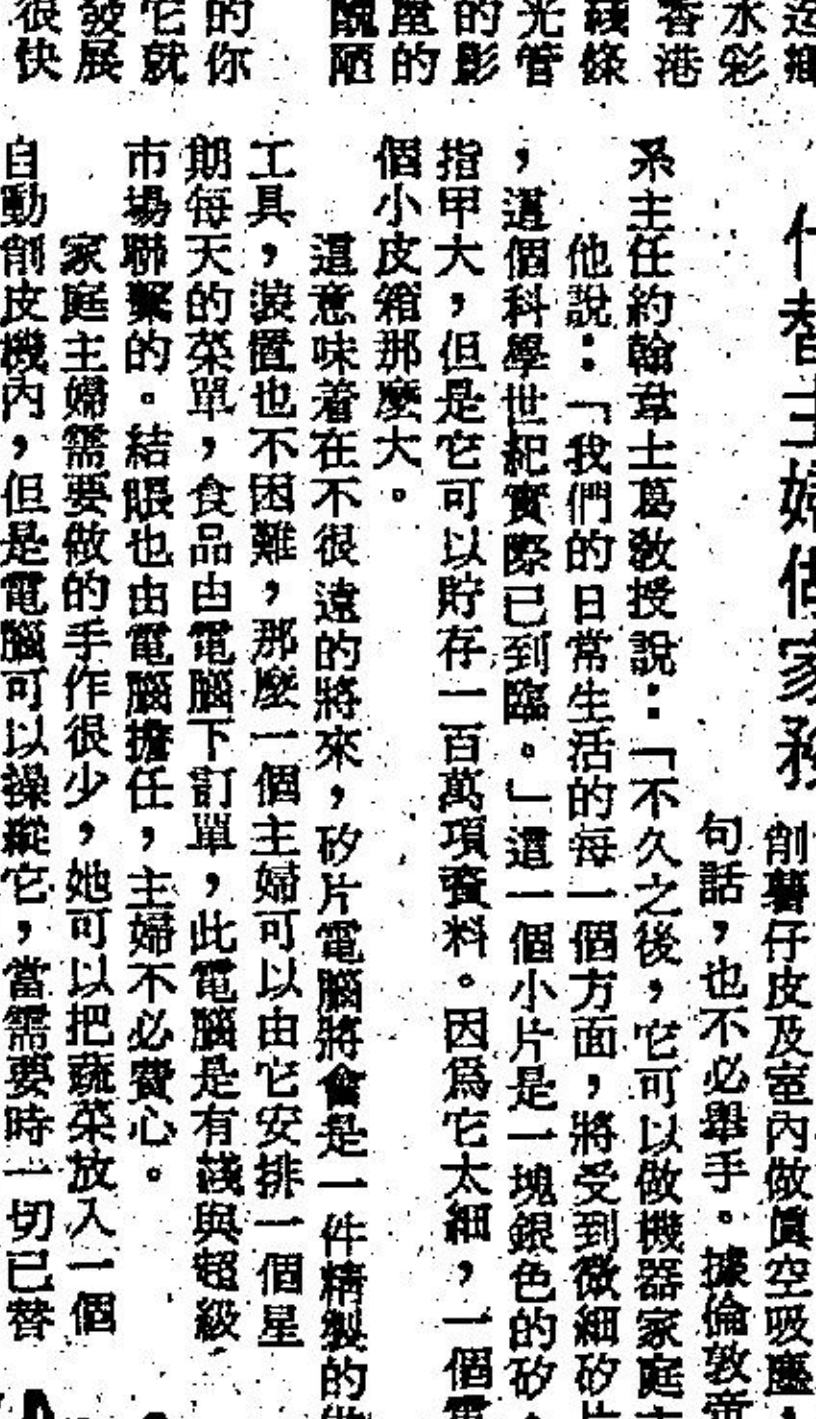 運
水彩
香港
綫條
光管
的影
屋的
醜陋
的你
它就
發展
很快
主婦做家務
削薯仔皮及室內做眞空吸塵
句話，也不必舉手。據倫敦帝
系主任約翰韋士葛敎授說：「不久之後，它可以做機器家庭主
他說：「我們的日常生活的每一個方面，將受到微細矽片
，這個科學世紀實際已到臨。」這一個小片是一塊銀色的矽
指甲大，但是它可以貯存一百萬項資料。因爲它太細，一個電
個小皮箱那麼大。
這意味着在不很遠的將來，矽片電腦將會是一件精製的
工具，裝置也不困難，那麼一個主婦可以由它安排一個星
期每天的菜單，食品由電腦下訂單，此電腦是有綫與超級
市場聯繫的。結賬也由電腦擔任，主婦不必費心。
家庭主婦需要做的手作很少，她可以把蔬菜放入一個
自動削皮機內，但是電腦可以操縱它，當需要時一切已替